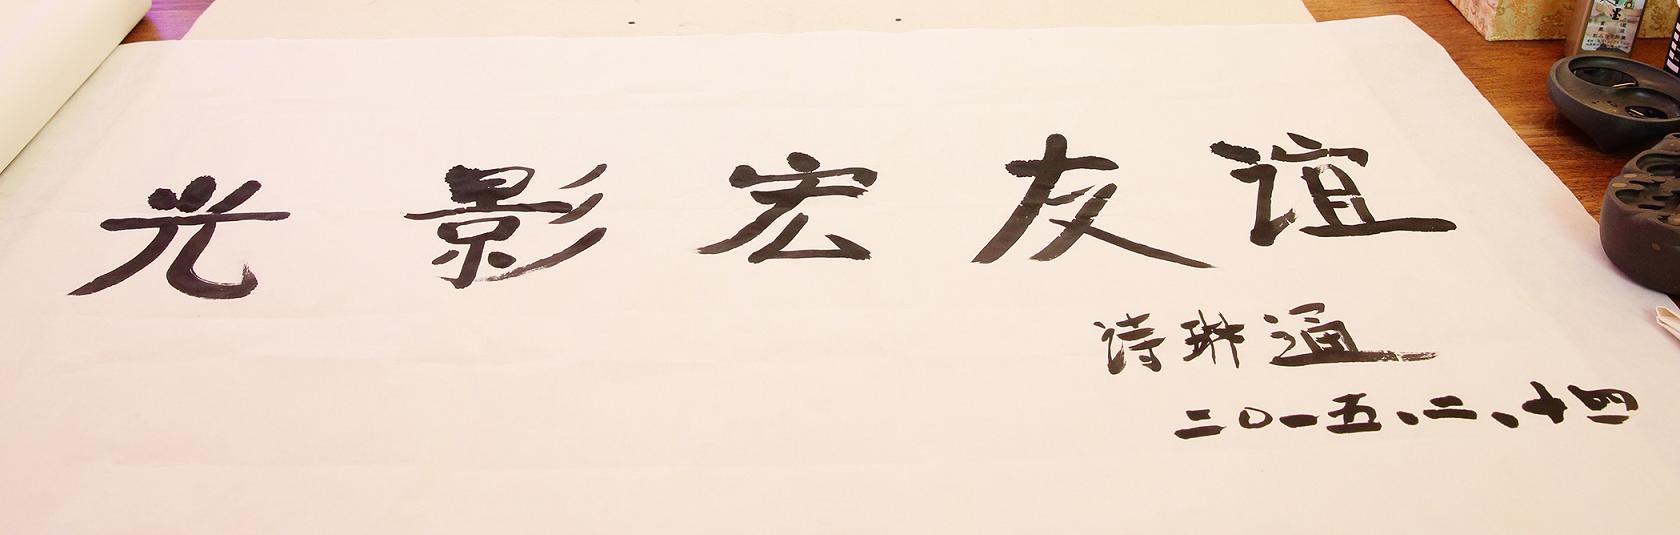 光影宏友谊
诗琳通
二〇一五、二、十四
墨